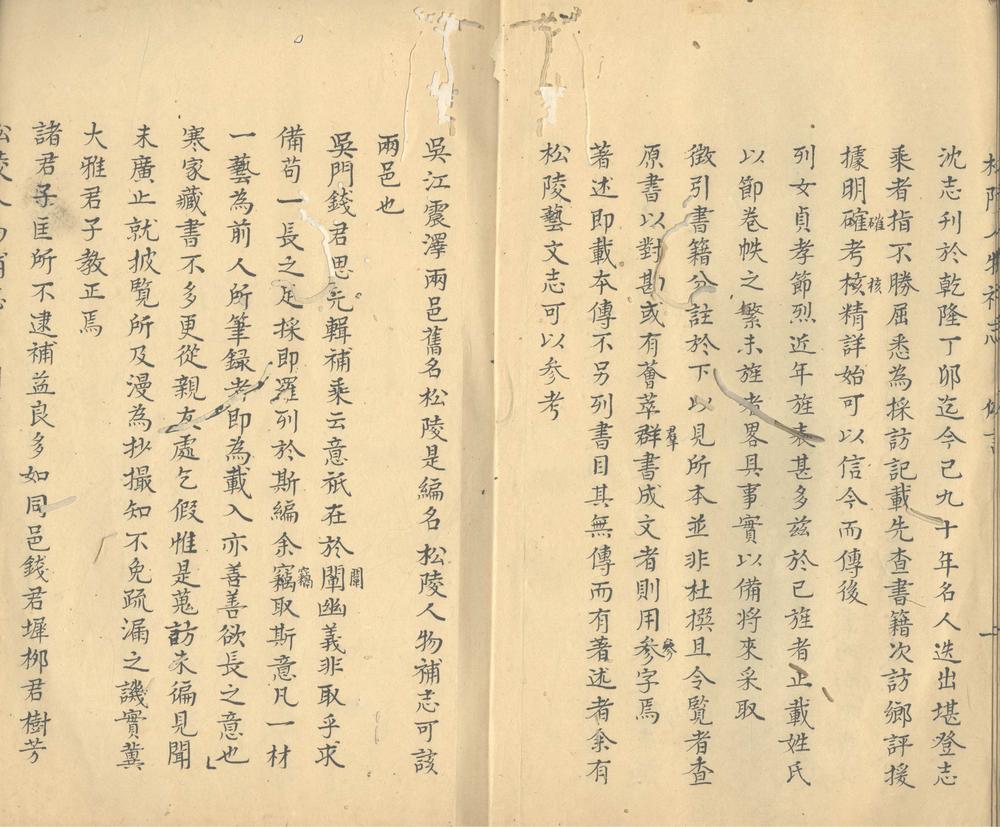 沈志刊於乾隆丁卯迄今已九十年名人迭出堪登志
乘者指不勝屈悉為採訪記載先查書籍次訪鄉評援
據明確考核精詳始可以信今而傳後
確
核
列女貞孝節烈近年旌表甚多茲於已旌者止載姓氏
以節卷帙之繁未旌者畧具事實以備將來采取
徵引書籍分註於下以見所本並非杜撰且令覽者查
原書以對勘或有薈萃群書成文者則用參字焉
羣
參
著述即載本傳不另列書目其無傳而有著述者余有
松陵藝文志可以參考
吳江震澤兩邑舊名松陵是編名松陵人物補志可該
兩邑也
吳門錢君思元輯補乘云意祇在於闡幽義非取乎求
闡
備苟一長之足採即羅列於斯編余竊取斯意凡一材
竊
一藝為前人所筆録者即為載入亦善善欲長之意也
寒家藏書不多更從親友處乞假惟是蒐訪未徧見聞
未廣止就披覽所及漫為抄撮知不免疏漏之譏實冀
大雅君子教正焉
諸君子匡所不逮補益良多如同邑錢君墀柳君樹芳